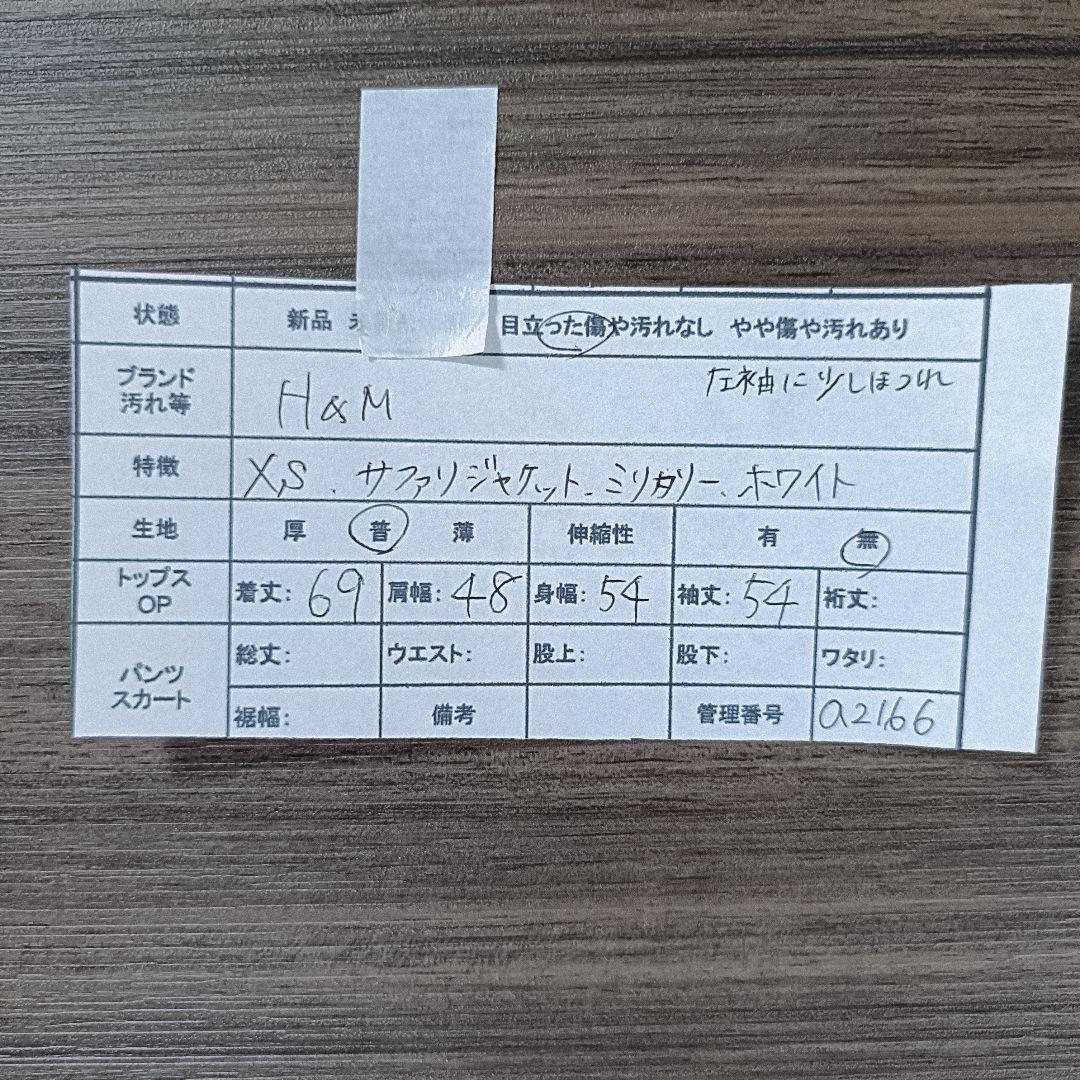 状態 新品 目立った傷や汚れなし やや傷や汚れあり
ブランド 汚れ等 H&M 左袖に少しほつれ
特徴 XS、サファリジャケット、ミリタリー、ホワイト
生地 厚 普 薄 伸縮性 有 無
トップス OP 着丈: 69 肩幅: 48 身幅: 54 袖丈: 54 裄丈:
パンツ スカート 総丈: ウエスト: 股上: 股下: ワタリ:
裾幅: 備考 管理番号 a2166